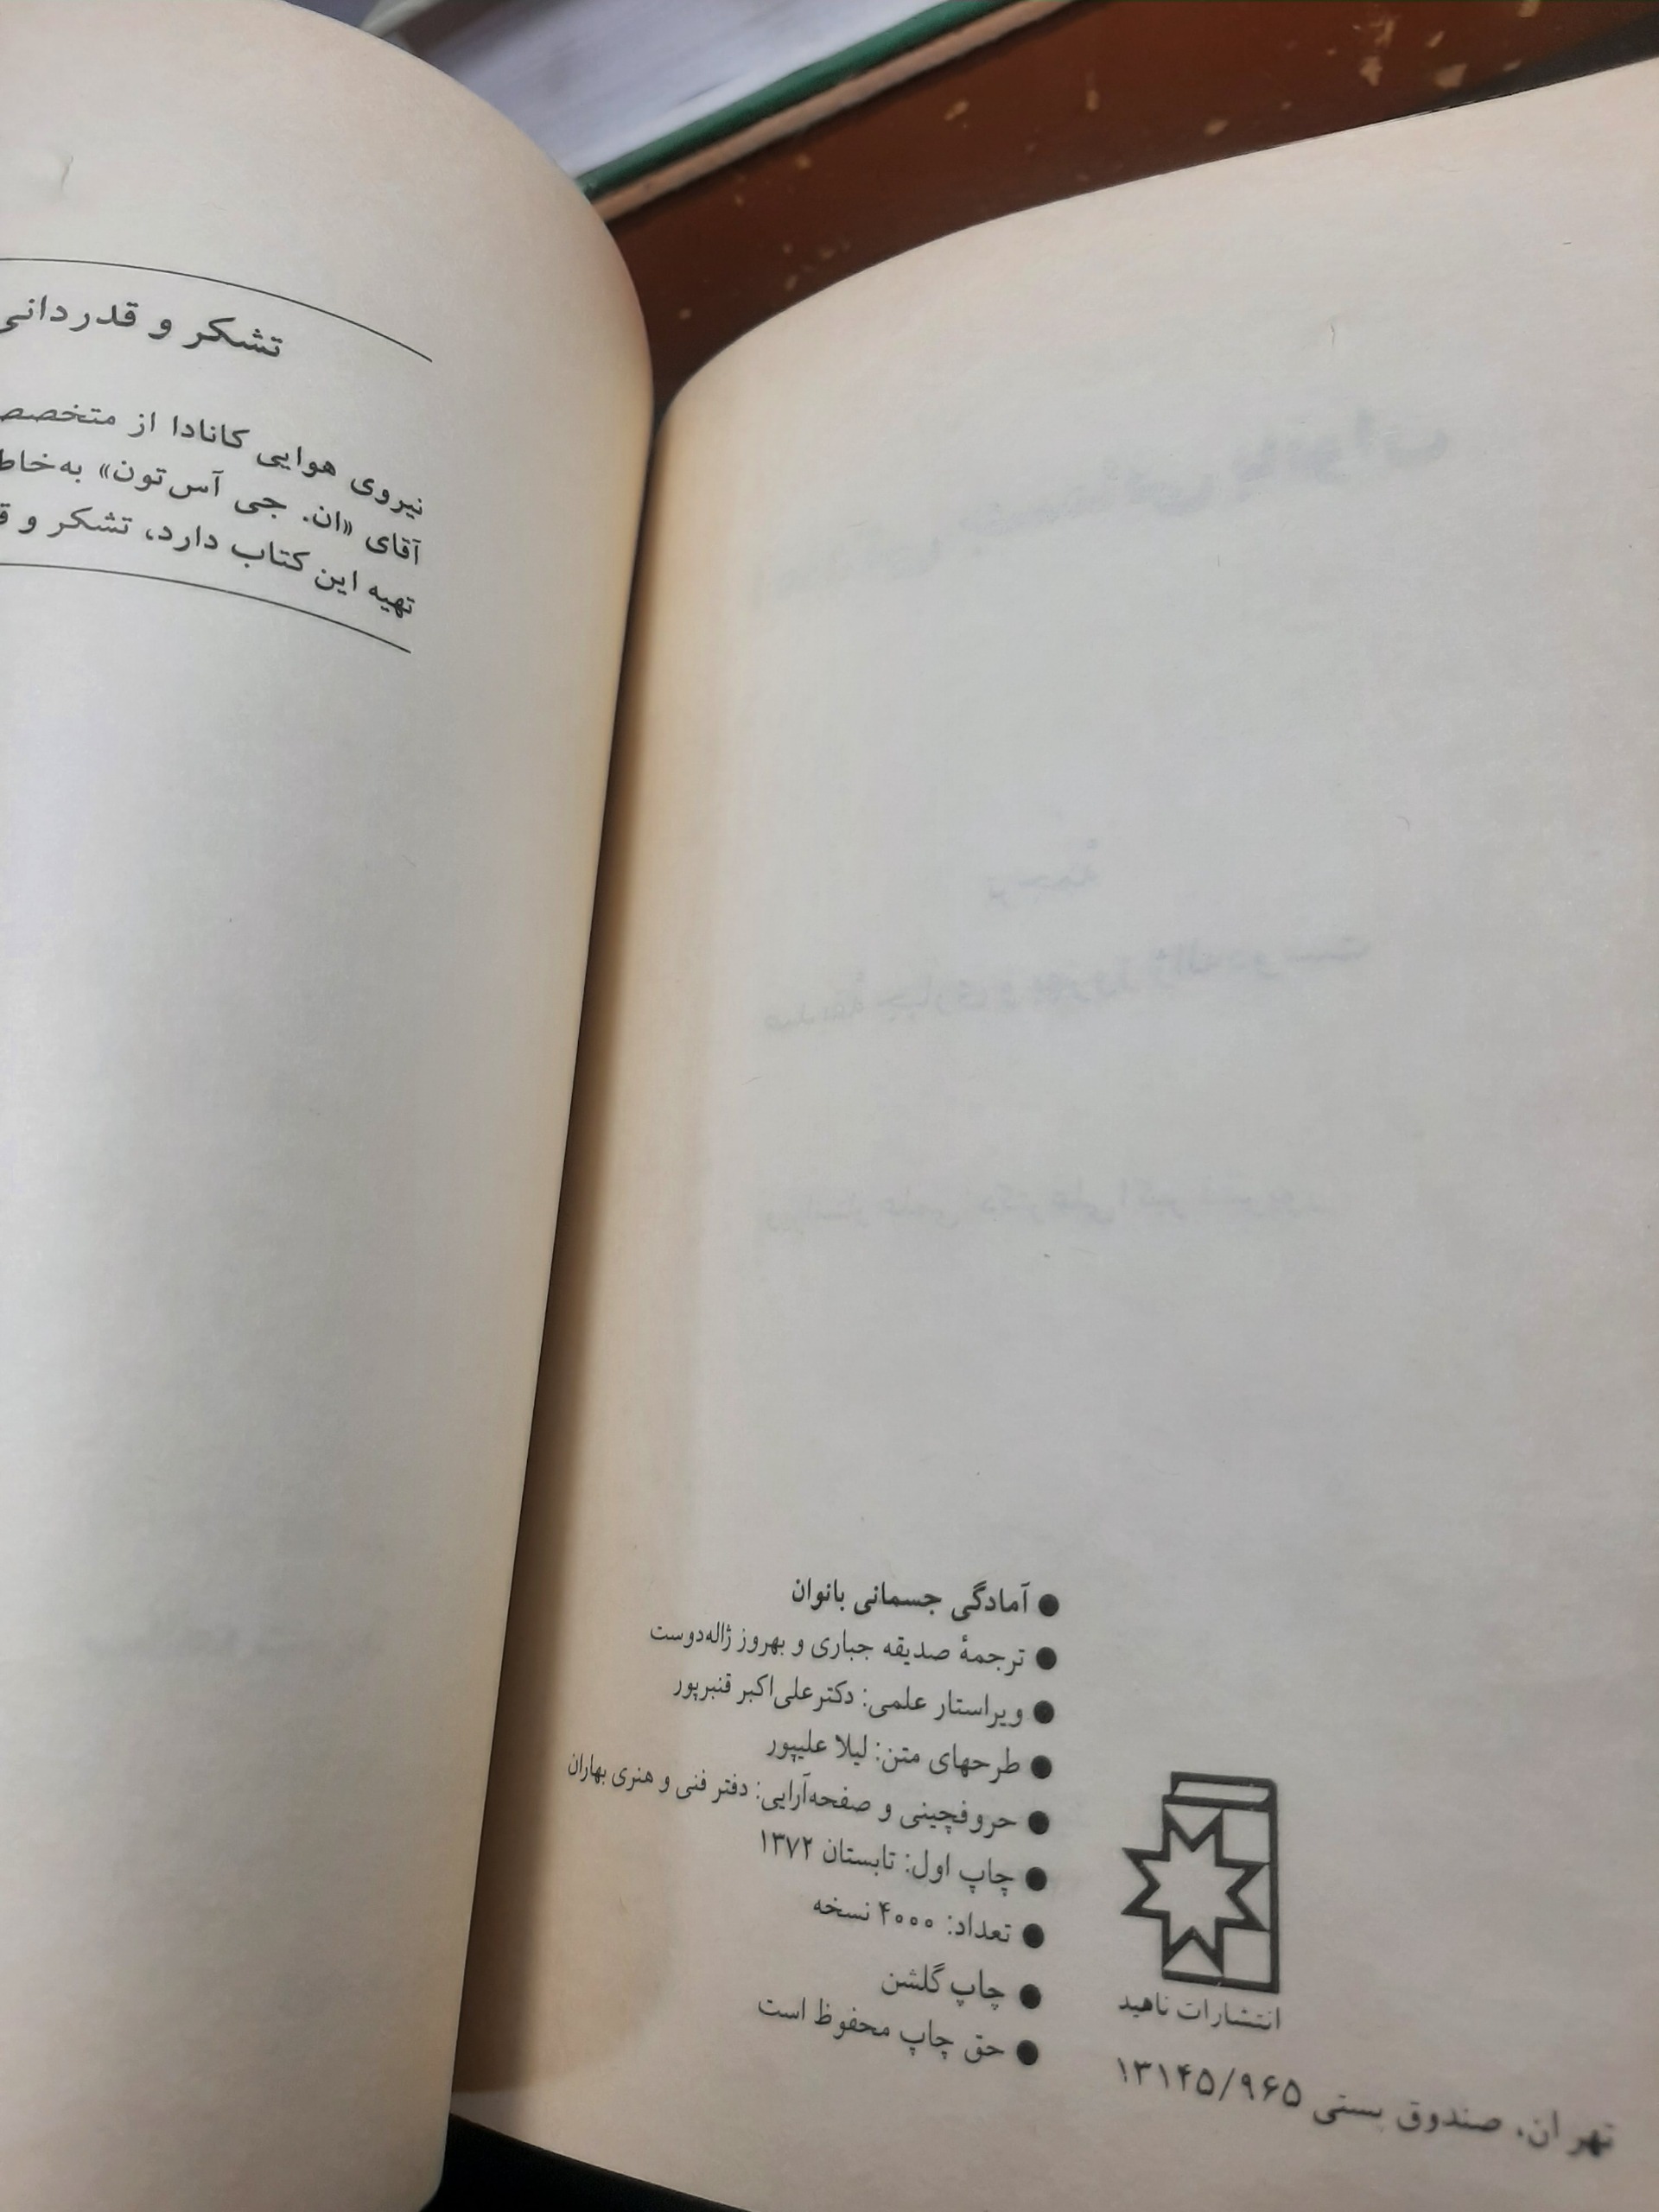 آمادگی جسمانی بانوان
ترجمهٔ صدیقه جباری و بهروز ژاله‌دوست
ویراستار علمی: دکتر علی‌اکبر قنبرپور
طرحهای متن: لیلا علیپور
حروفچینی و صفحه‌آرایی: دفتر فنی و هنری بهاران
چاپ اول: تابستان ۱۳۷۲
تعداد: ۴۰۰۰ نسخه
چاپ گلشن
حق چاپ محفوظ است
انتشارات ناهید
تهران، صندوق پستی ۱۳۱۴۵/۹۶۵
تشکر و قدردانی
نیروی هوایی کانادا از
آقای «ان. جی آس‌تون»
تهیه این کتاب دارد، تشکر و